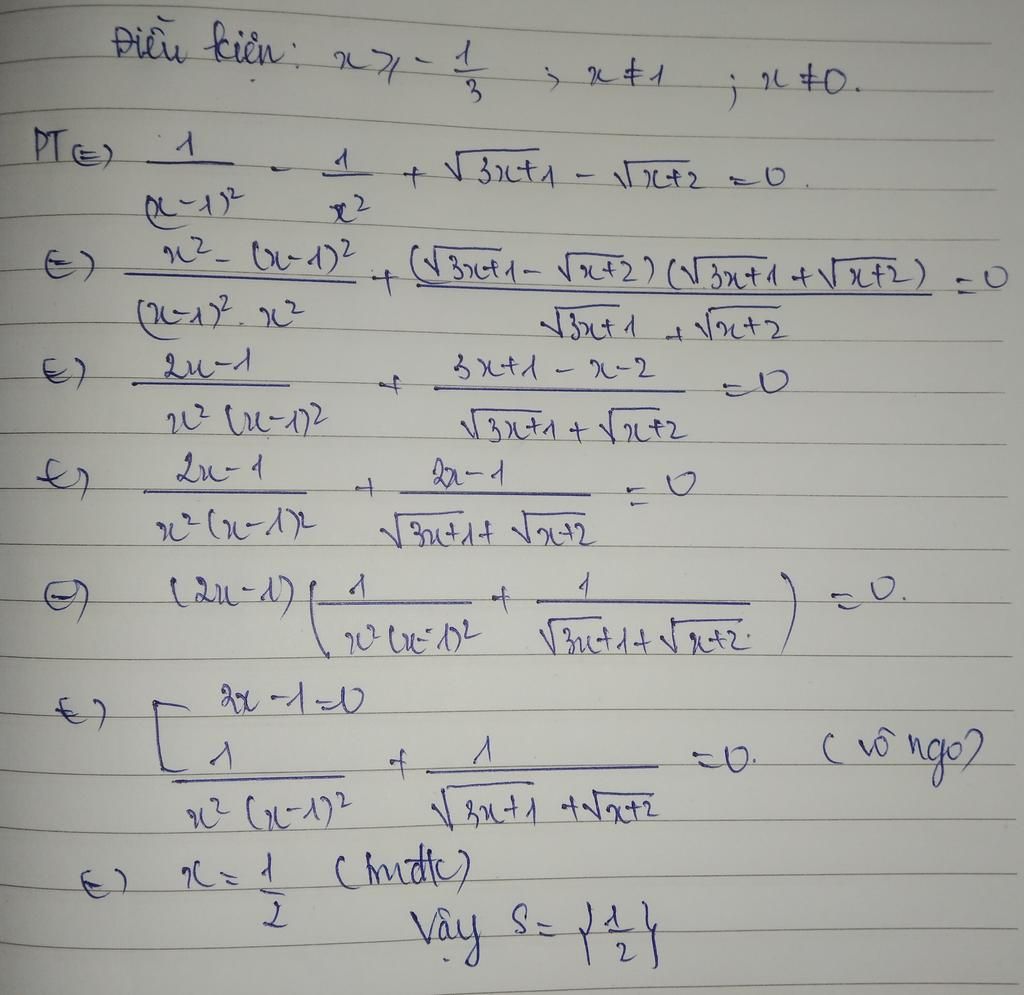 Điều kiện: x ⩾ - 1/3 ; x ≠ 1 ; x ≠ 0.
PT ⇔ 1/(x-1)² - 1/x² + √(3x+1) - √(x+2) = 0.
⇔ (x² - (x-1)²)/((x-1)² . x²) + ((√(3x+1) - √(x+2))(√(3x+1) + √(x+2)))/(√(3x+1) + √(x+2)) = 0
⇔ (2x-1)/(x²(x-1)²) + (3x+1-x-2)/(√(3x+1) + √(x+2)) = 0
⇔ (2x-1)/(x²(x-1)²) + (2x-1)/(√(3x+1) + √(x+2)) = 0
⇔ (2x-1)(1/(x²(x-1)²) + 1/(√(3x+1) + √(x+2))) = 0.
⇔ [ 2x-1=0
1/(x²(x-1)²) + 1/(√(3x+1) + √(x+2)) = 0. (vô ngo)
⇔ x = 1/2 (tmđk)
Vậy S = {1/2}